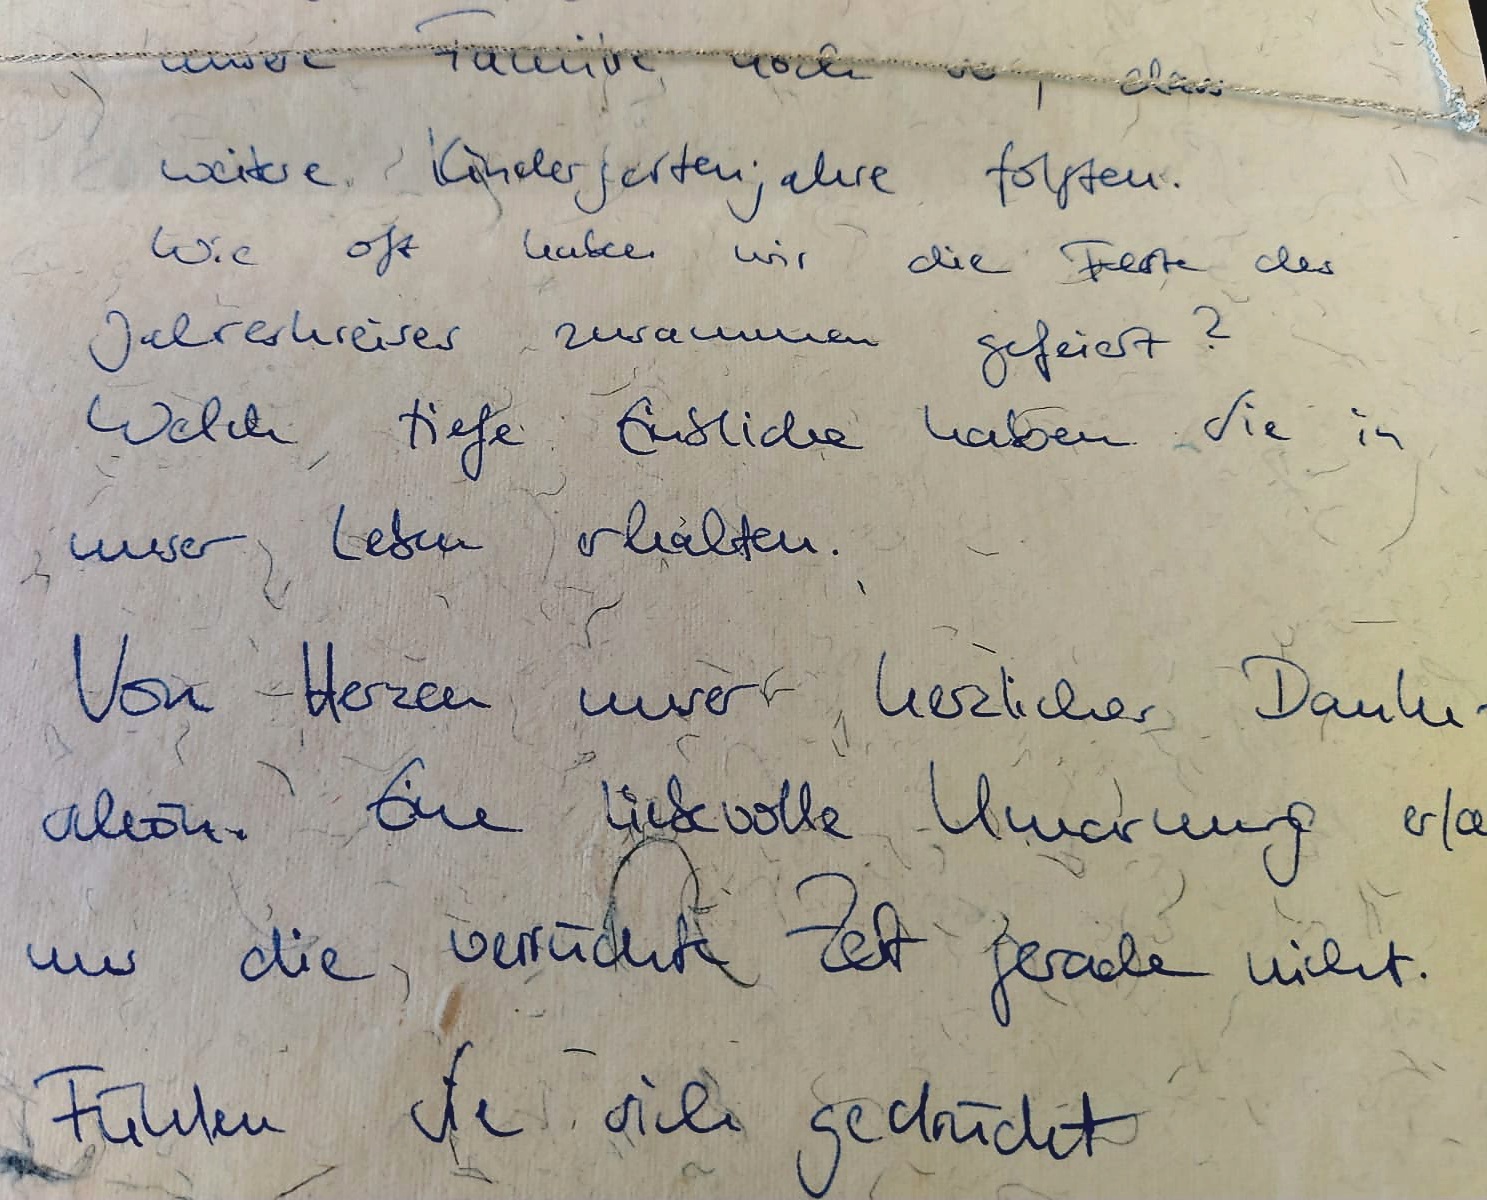 unsere Familie noch so, dass
weitere Kindergartenjahre folgten.
Wie oft haben wir die Feste des
Jahreskreises zusammen gefeiert?
Welch tiefe Einblicke haben Sie in
unser Leben erhalten.
Von Herzen unser herzlicher Danke-
schön. Eine liebevolle Umarmung erla
uns die verrückte Zeit gerade nicht.
Fühlen Sie sich gedrückt